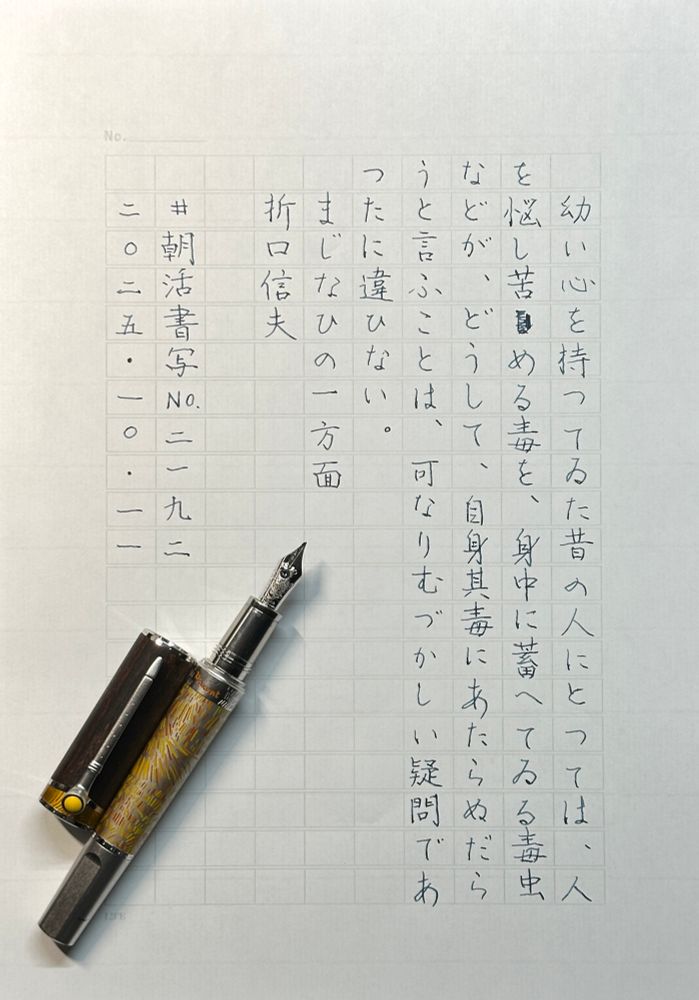 幼い心を持つてゐた昔の人にとつては、人
を悩し苦める毒を、身中に蓄へてゐる毒虫
などが、どうして、自身其毒にあたらぬだら
うと言ふことは、可なりむづかしい疑問であ
つたに違ひない。
まじなひの一方面
折口信夫
#朝活書写No.二一九二
二〇二五・一〇・一一
No.
LIFE